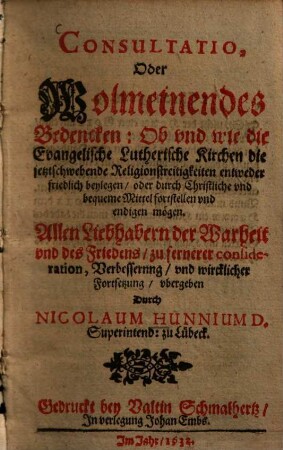 CONSULTATIO,
Oder
Wolmeinendes
Bedencken: Ob vnd wie die
Evangelische Lutherische Kirchen die
jetztschwebende Religionsstreitigkeiten entweder
friedlich beylegen/ oder durch Christliche vnd
bequeme Mittel fortstellen vnd
endigen mögen.
Allen Liebhabern der Warheit
vnd des Friedens/ zu fernerer conside-
ration, Verbesserung/ vnd wircklicher
Fortsetzung/ vbergeben
Durch
NICOLAUM HUNNIUM D.
Superintend: zu Lübeck.
Gedruckt bey Valtin Schmalhertz/
In verlegung Johan Embs.
Im Jahr/ 1632.